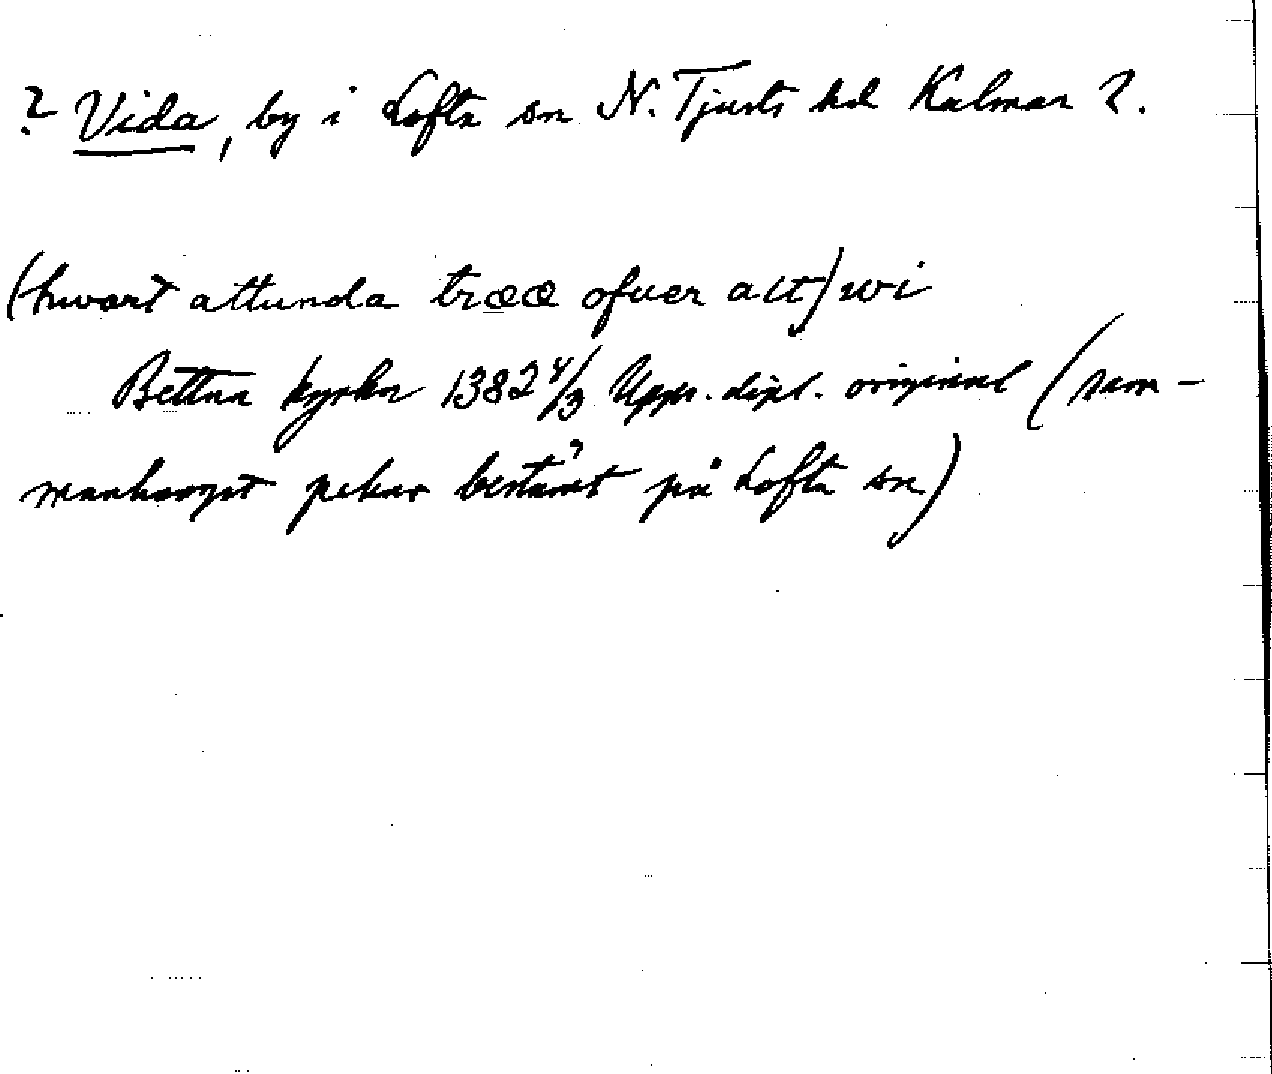 ? Vida, by i Lofta sn N. Tjusts hd Kalmar ?.
(huart attunda trææ ofuer alt) wi
Bettna kyrko 1382 4/3 Upps. dipl. original (sam-
manhanget pekar bestämt på Lofta sn)